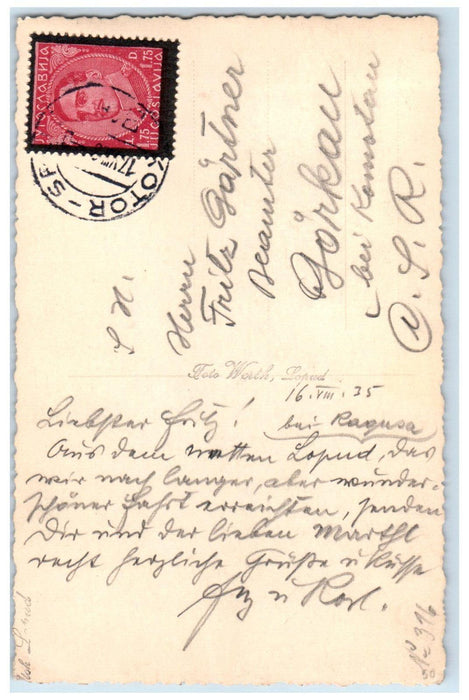 ЈУГОСЛАВИЈА
1.75 D. 1.75
JUGOSLAVIJA
KOTOR
17 VIII
S. H.
Herrn
Fritz Gärtner
Beamter
Görkau
bei Komotau
Č. S. R.
Foto Worth, Lopud
16. VIII. 35
bei Ragusa
Liebster Fritz!
Aus dem netten Lopud, das
wir nach langer, aber wunder-
schöner Fahrt erreichten, senden
Dir und der lieben Marthl
recht herzliche Grüße u Küsse
u Karl.
No 316